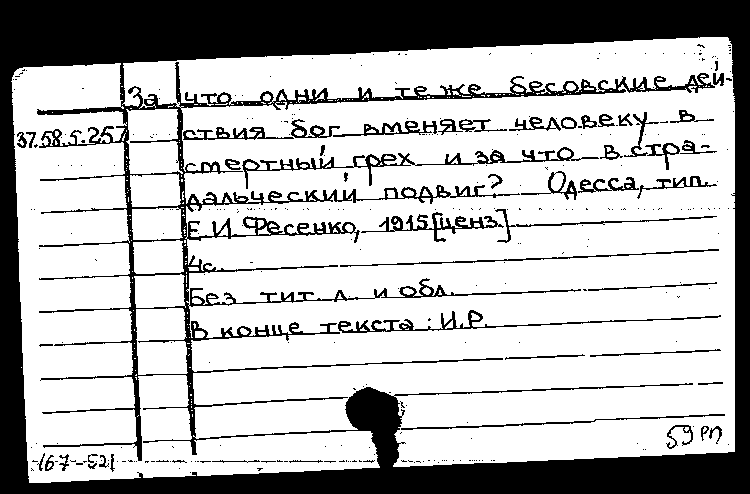 За что одни и те же бесовские дей-
37.58.5.257 ствия бог вменяет человеку в
смертный грех и за что в стра-
дальческий подвиг? Одесса, тип.
Е.И. Фесенко, 1915 [ценз.].
4с.
Без тит. л. и обл.
В конце текста: И.Р.
59 РП
167-521